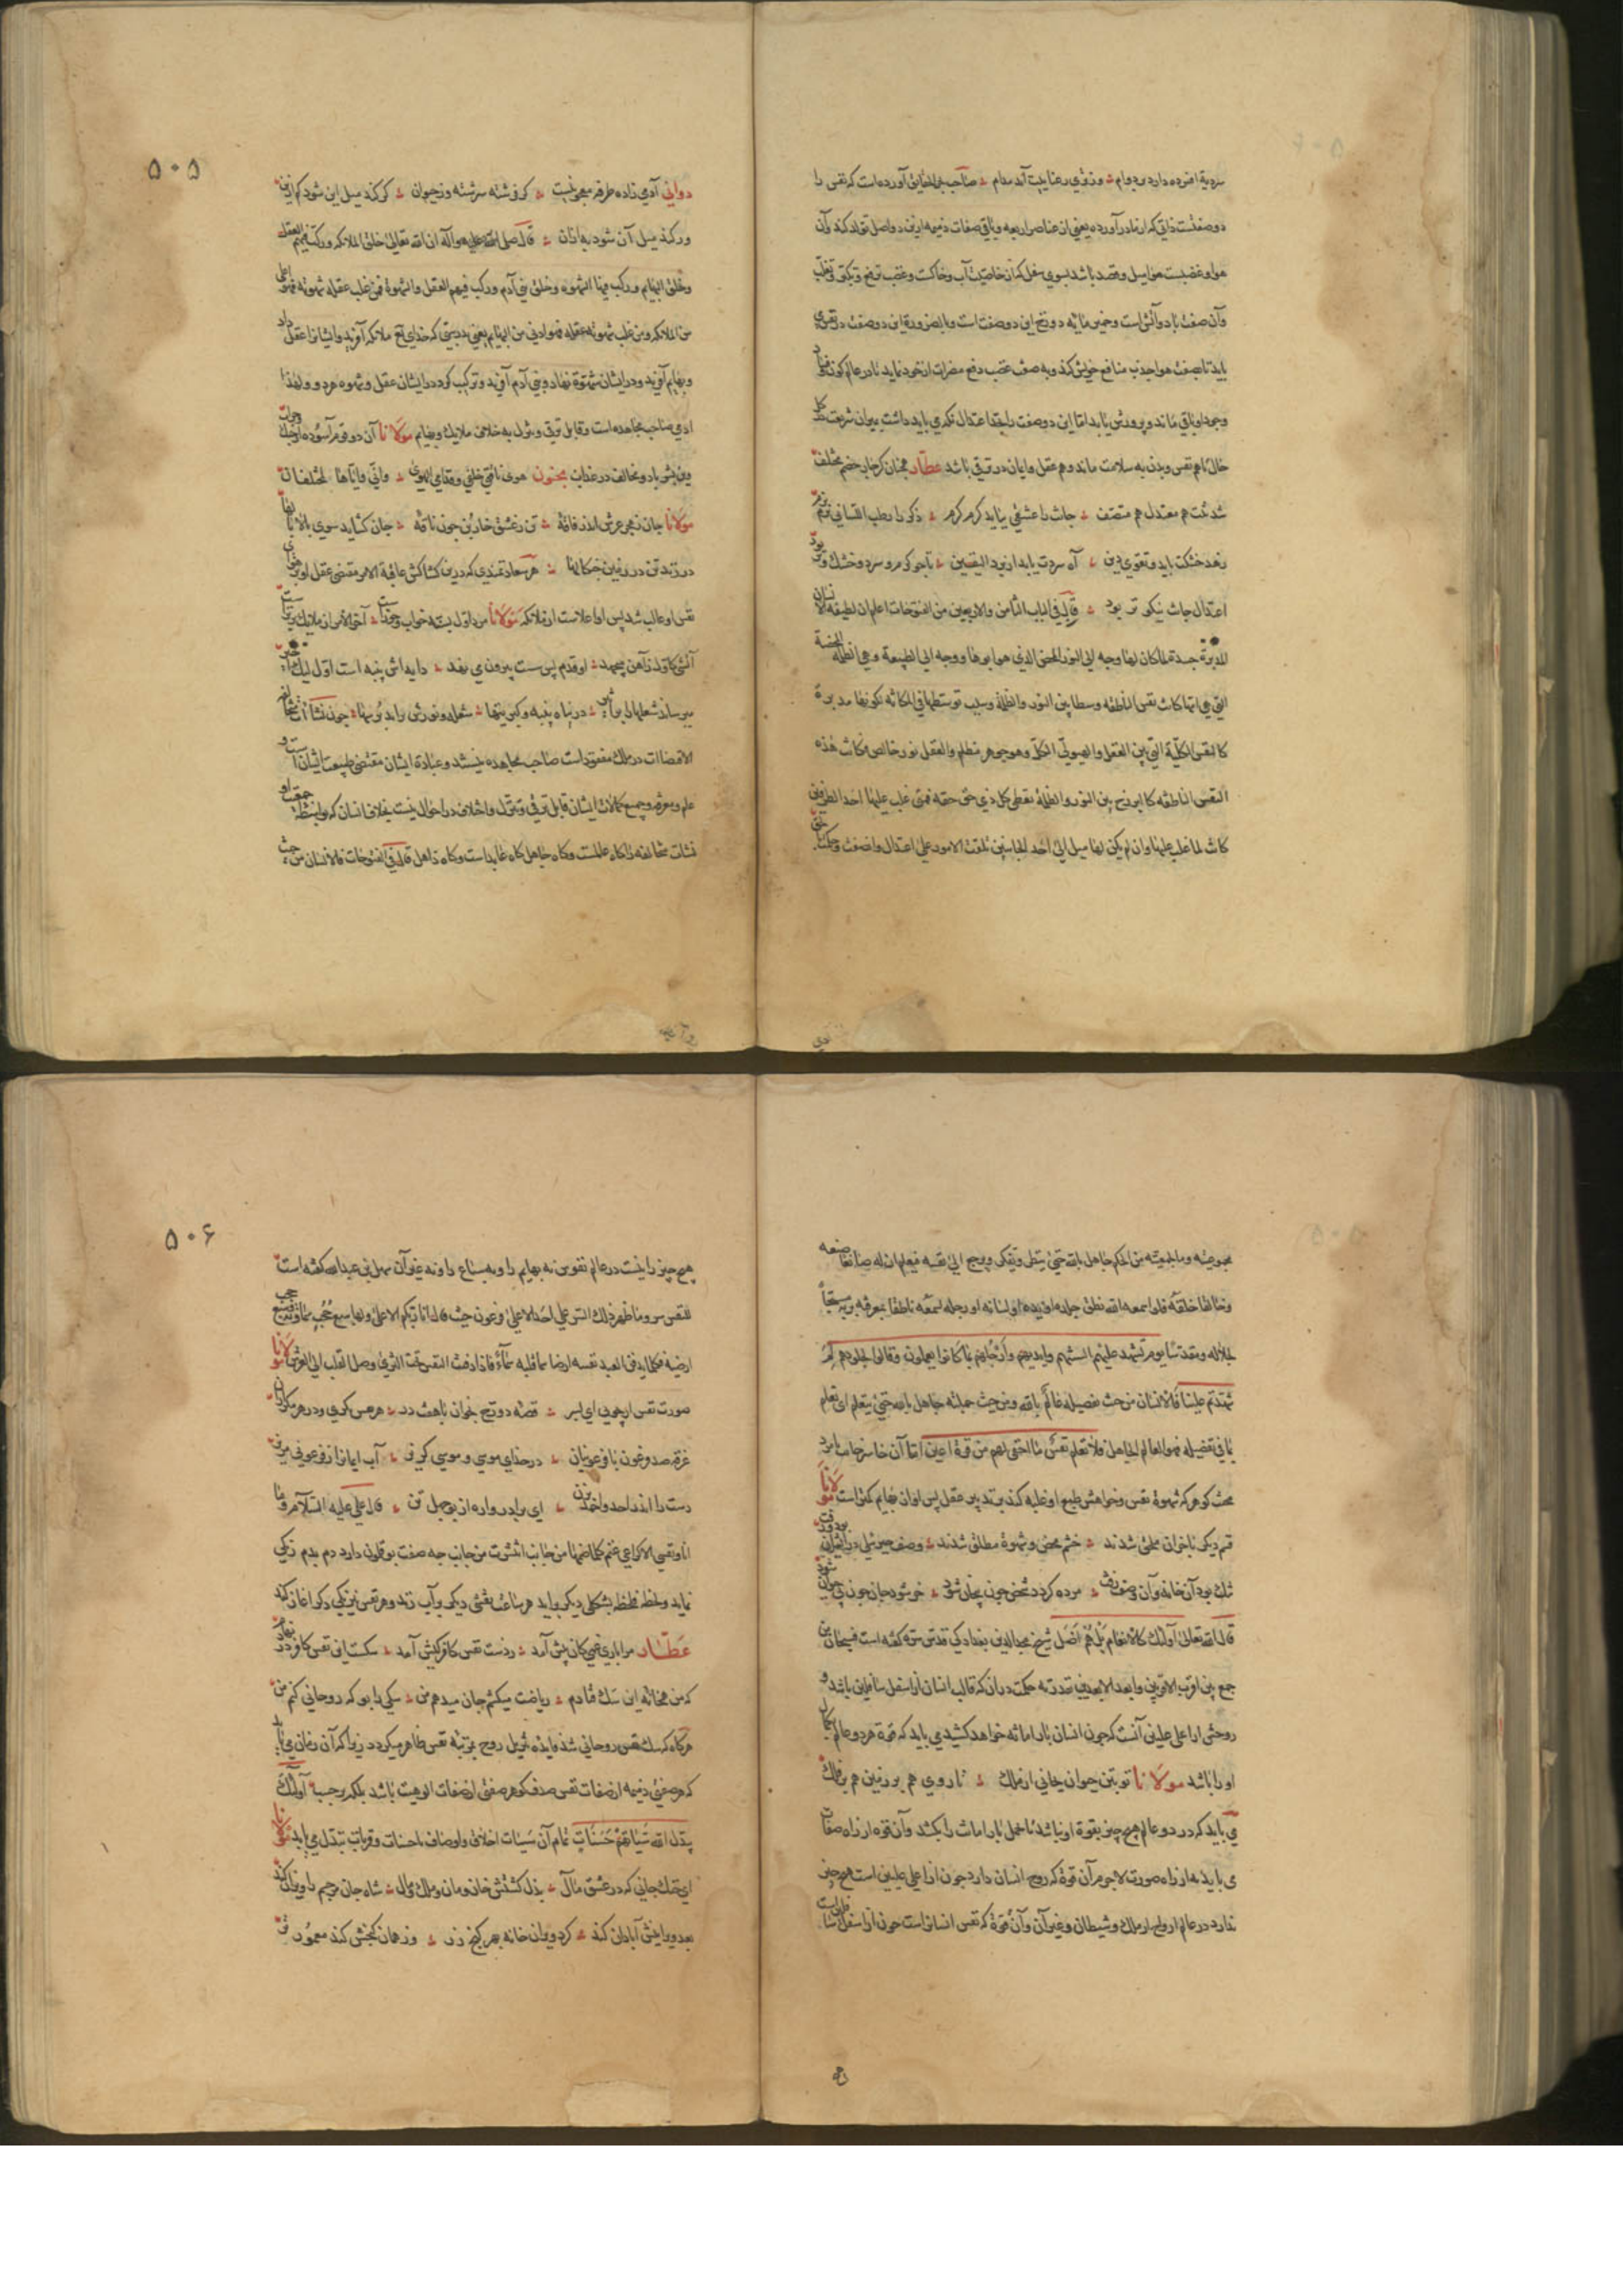 سردیهٔ افسرده دارد بر دوام ؞ وز توی رعنا
صاحب آورده است که نفس را
دو صفتست ذاتی که از مادر آورده یعنی از عناصر اربعه و باقی صفات ذمیمه ازین دو اصل تولد کند و آن
هوا و غضبست هوا میل و قصد باشد بسوی سفل که آن خاصیت آب و خاکست و غضب ترفع و تکبر و تغلب
و آن صفت باد و آتش است و خمیر مایهٔ دوزخ این دو صفت است و بالضرورة این دو صفت در نفس
باید تا بصفت هوا جذب منافع خویش کند و به صفت غضب دفع مضرات از خود نماید تا در عالم کون و فساد
وجود او باقی ماند و پرورش یابد اما این دو صفت را بحد اعتدال نگه باید داشت بمیزان شریعت
تا هم نفس و بدن به سلامت ماند و هم عقل و ایمان در ترقی باشد عطار همچنان کز چار خصم مختلف
شد تنت هم معتدل هم متصف ؞ جانت را عشقی بباید گرم گرم ؞ ذکر را رطب اللسانی نرم نرم
زهد خشکت باید و تقوی دین ؞ آه سردت باید از برد الیقین ؞ تا چو گرم و سرد و خشک و تر بود
اعتدال جانت نیکوتر بود ؞ قال فی الباب الثامن والاربعین من الفتوحات اعلم ان لطیفة الانسان
المدبرة جسده لما کان لها وجه الی النور المحض الذی هو ابوها و وجه الی الطبیعة و هی الظلمة المحضة
التی هی امها کانت نفس الناطقة وسطا بین النور والظلمة وسبب توسطها فی المکانة لکونها مدبرة
کالنفس الکلیة التی بین العقل والهیولی الکل وهو جوهر مظلم والعقل نور خالص فکانت هذه
النفس الناطقة کالبرزخ بین النور والظلمة تعطی کل ذی حق حقه فمتی غلب علیها احد الطرفین
کانت لما غلب علیها وان لم یکن لها میل الی احد الجانبین تلقت الامور علی اعتدال وانصفت وحکمت بالحق
۵۰۵
دوانی آدمی زاده طرفه معجونیست ؞ کز فرشته سرشته وز حیوان ؞ گر کند میل این شود کم ازین
ور کند میل آن شود به از آن ؞ قال صلی الله علیه و آله ان الله تعالی خلق الملائکه و رکب فیهم العقل
و خلق البهایم و رکب فیها الشهوه و خلق بنی آدم و رکب فیهم العقل والشهوة فمن غلب عقله شهوته فهو اعلی
من الملائکه و من غلب شهوته عقله فهو ادنی من البهایم یعنی بدرستی که خدای تع ملائکه آفرید و ایشانرا عقل داد
و بهایم آفرید و در ایشان شهوة نهاد و بنی آدم آفرید و ترکیب کرد در ایشان عقل و شهوه هر دو و لهذا
ادمی صاحب مجاهده است و قابل ترقی و نزول به خلاف ملایک و بهایم مولانا آن دو قوم آسوده از جنگ و حراب
وین بشر با دو مخالف در عذاب مجنون هوی ناقتی خلفی و قدامی الهوی ؞ وانّی و ایّاها لمختلفان
مولانا جان ز هجر عرش اندر فاقهٔ ؞ تن ز عشق خاربن چون ناقهٔ ؞ جان گشاید سوی بالا بالها
در زده تن در زمین چنگالها ؞ هر سعادتمندی که درین کشاکش عاقبة الامر مقتضی عقل او بر هوای
نفس او غالب شد پس او اعلاست از ملائکه مولانا مرد اول بسته خواب و خورست ؞ آخر الامر از ملایک برترست
آتشی کاول ز آهن میجهد ؞ او قدم بس سست بیرون می نهد ؞ دایه اش پنبه است اول لیک اخیر
میرساند شعلها تا بر اثیر ؞ در پناه پنبه و کبریتها ؞ شعله و نورش برآید بر سها ؞ چون نشأت
در ملک مفقود است صاحب مجاهده نیستند و عبادة ایشان مقتضی طبیعت ایشان است و
علم و معرفة و جمیع کمالات ایشان قابل ترقی و تنزل و اختلاف در احوال نیست بخلاف انسان که بواسطهٔ جمعیت او
نشأت متخالفه را گاه عالمست و گاه جاهل گاه عابد است و گاه ذاهل قال فی الفتوحات فالانسان من حیث
من الحکم جاهل بالله حتی ینظر و یتفکر و یرجع الی نفسه فیعلم ان له صانعا صنعه
و خالقا خلقه فلو اسمعه الله نطق جلده او یده او لسانه او رجله لسمعه ناطقا بمعرفة ربه مسبحاً
لجلاله ومقدسا یوم تشهد علیهم السنتهم وایدیهم وارجلهم بما کانوا یعملون وقالوا لجلودهم لم
شهدتم علینا فالانسان من حیث تفصیله عالم بالله ومن حیث جملته جاهل بالله حتی یتعلم ای تعلم
بما فی تفصیله فهو العالم الجاهل فلا تعلم نفس ما اخفی لهم من قرة اعین اما آن خاسر خایب نامرد
مخنث گوهر که شهوة نفس و خواهش طبع او غلبه کند بر تدبیر عقل پس او از بهایم کمتر است مولانا
قسم دیگر با خران ملحق شدند ؞ خشم محض و شهوة مطلق شدند ؞ وصف جبرئیلی در ایشان بود رفت
تنگ بود آن خانه و آن وصف زفت ؞ مرده گردد شخص چون بیجان شود ؞ خر شود جان چون بی آن شود
قال الله تعالی اولئک کالانعام بل هم اضل شیخ مجدالدین بغدادی قدس سره گفته است فسبحان من
جمع بین اقرب الاقربین وابعد الابعدین بقدرته حکمت در آن که قالب انسان از اسفل سافلین باشد و
روحش از اعلی علیین آنست که چون انسان بار امانة خواهد کشید می باید که قوة هر دو عالم بکمال
او را باشد مولانا تو بتن حیوان بجانی از ملک ؞ تا روی هم بر زمین هم بر فلک
می باید که در دو عالم هیچ چیز بقوة او نباشد تا تحمل بار امانت را بکشد و آن قوه از راه صفات
می باید نه از راه صورت لاجرم آن قوة که روح انسان دارد چون از اعلی علیین است هیچ چیز
ندارد در عالم ارواح از ملک و شیطان و غیر آن و آن قوة که نفس انسانراست چون از اسفل سافلین است
۵۰۶
هیچ چیز را نیست در عالم نفوس نه بهایم را و نه سباع را و نه غیر آن سهل بن عبدالله گفته است
للنفس سر وما ظهر ذلک السر علی احد الا علی فرعون حیث قال انا ربکم الاعلی ولها سبع حجب سماویة وسبع حجب
ارضیة فکلما یدفن العبد نفسه ارضا سما قلبه سماءً فاذا دفنت النفس تحت الثری وصل القلب الی العرش مولانا
صورت نفس ار بجویی ای پسر ؞ قصهٔ دوزخ بخوان با هفت در ؞ هر نفس مکری و در هر مکر زان
غرقه صد فرعون با فرعونیان ؞ در خدای موسی و موسی گریز ؞ آب ایمانرا ز فرعونی مریز
دست را اندر احد و احمد بزن ؞ ای برادر واره از بوجهل تن ؞ قال علی علیه السلام و ما
انا ونفسی الا کراعی غنم کلما ضمها من جانب انتشرت من جانب چه صفت بوقلمون دارد دم بدم رنگی
نماید و لحظه لحظه بشکلی دیگر برآید هر ساعت نقشی دیگر برآب زند و هر نفس نیرنگی دگر آغاز کند
عطار مرا باری غمی کان پیش آمد ؞ ز دست نفس کافر کیش آمد ؞ سگست این نفس کافر در نهادم
که من همخانهٔ این سگ فتادم ؞ ریاضت میکشم جان میدهم من ؞ سگی را بو که روحانی کنم من
هرگاه که سگ نفس روحانی شد فایدهٔ تنزیل روح بمرتبهٔ نفس ظاهر میگردد زیرا که آن زمان می یابد
که هر صفتی ذمیمه از صفات نفس صدف گوهر صفتی از صفات الوهیت باشد بلکه بر حسب اولئک
یبدل الله سیئاتهم حسنات تمام آن سیئات اخلاق و اوصاف باحسنات و قربات تبدل می یابد مولانا
ای خنک جانی که در عشق مآل ؞ بذل کردش خان و مان و ملک و مال ؞ شاه جان مر جسم را ویران کند
بعد ویرانیش آبادان کند ؞ کرد ویران خانه بهر گنج زر ؞ وز همان گنجش کند معمورتر